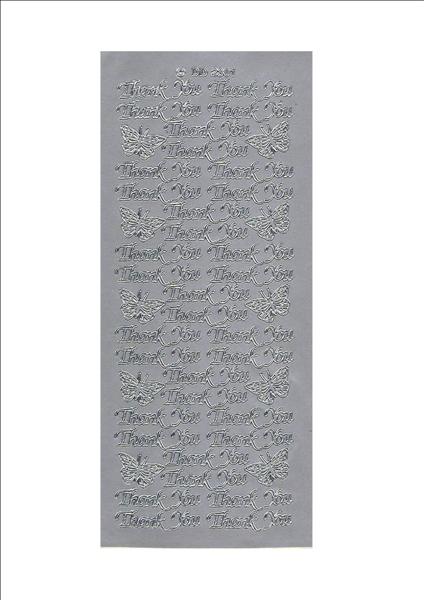 Thank You Thank You
Thank You Thank You
Thank You
Thank You
Thank You Thank You
Thank You Thank You
Thank You
Thank You
Thank You Thank You
Thank You Thank You
Thank You
Thank You
Thank You Thank You
Thank You Thank You
Thank You
Thank You
Thank You Thank You
Thank You Thank You
Thank You
Thank You
Thank You Thank You
Thank You Thank You